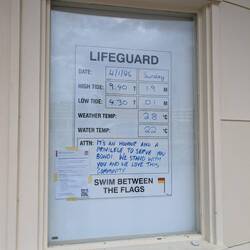 LIFEGUARD
DATE: 4/1/26 Sunday
HIGH TIDE: 9.40 T 1.9 M
LOW TIDE: 4.30 T 0.1 M
WEATHER TEMP: 28 °C
WATER TEMP: 22 °C
ATTN: IT'S AN HONOUR AND A
PRIVILEGE TO SERVE YOU
BONDI. WE STAND WITH
YOU AND WE LOVE THIS
COMMUNITY
SWIM BETWEEN
THE FLAGS